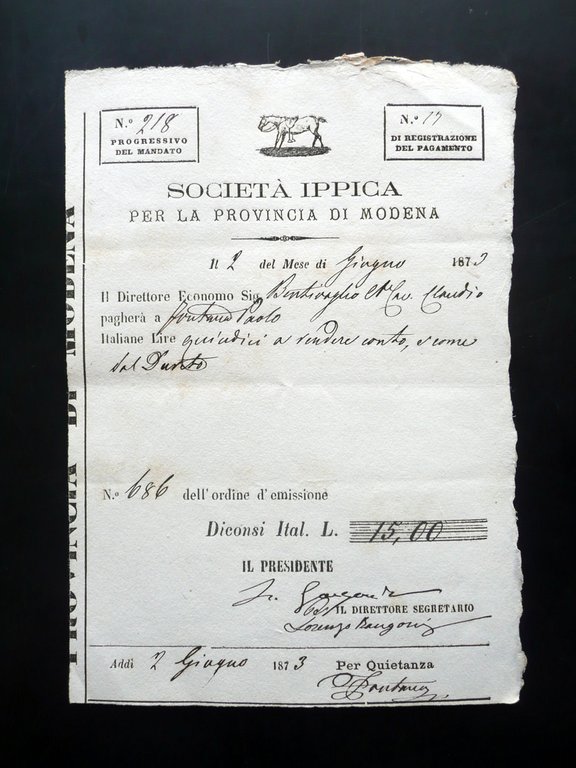 N.o 218
PROGRESSIVO
DEL MANDATO
N.o 17
DI REGISTRAZIONE
DEL PAGAMENTO
SOCIETÀ IPPICA
PER LA PROVINCIA DI MODENA
Il 2 del Mese di Giugno 1873
Il Direttore Economo Sig. Bentivoglio Cav. Claudio
pagherà a Fontana Paolo
Italiane Lire quindici a rendere conto, e come
dal
N.o 686 dell'ordine d'emissione
Diconsi Ital. L. 15,00
IL PRESIDENTE
IL DIRETTORE SEGRETARIO
Lorenzo Rangoni
Addì 2 Giugno 1873 Per Quietanza
P Fontana
PROVINCIA DI MODENA